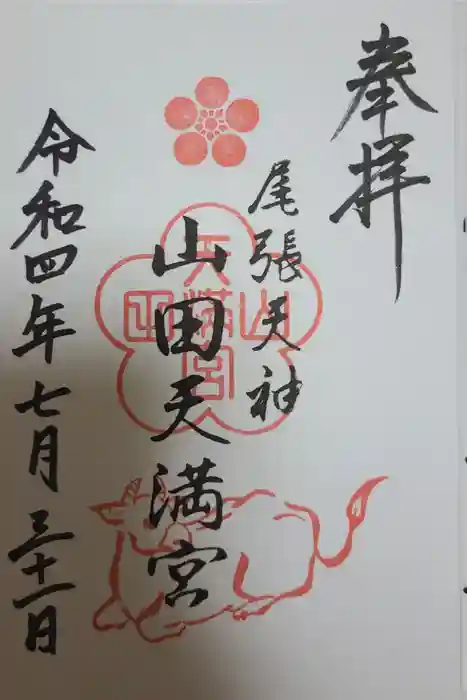 奉拝
尾張天神
山田天満宮
山田天満宮
令和四年七月三十一日